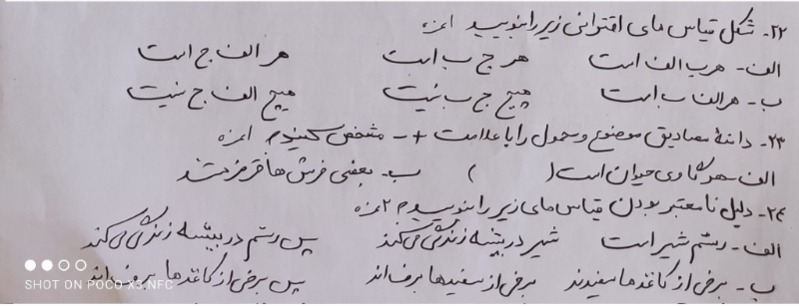 ۲۲- شکل قیاس های اقترانی زیر را بنویسید ۱نمره
الف- هر ب الف است هر ج ب است هر الف ج است
ب- هر الف ب است هیچ ج ب نیست هیچ الف ج نیست
۲۳- دامنهٔ مصادیق موضوع و محمول را با علامت + - مشخص کنید ۱نمره
الف- هر گاوی حیوان است ( ) ب- بعضی فرش ها قرمزند
۲۴- دلیل نامعتبر بودن قیاس های زیر را بنویسید ۲نمره
الف- رستم شیر است شیر در بیشه زندگی می کند پس رستم در بیشه زندگی می کند
ب- برخی از کاغذها سفیدند برخی از سفیدها برف اند پس برخی از کاغذها برف اند
SHOT ON POCO X3 NFC